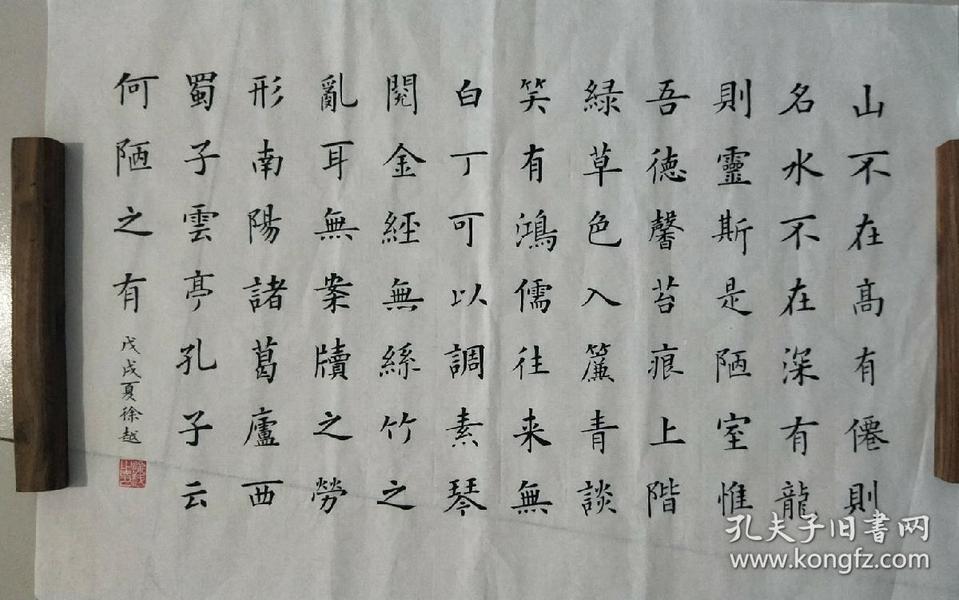 山不在高有僊則
名水不在深有龍
則靈斯是陋室惟
吾德馨苔痕上階
緑草色入簾青談
笑有鴻儒往来無
白丁可以調素琴
閱金經無絲竹之
亂耳無案牘之勞
形南陽諸葛廬西
蜀子雲亭孔子云
何陋之有
戊戌夏徐越
孔夫子旧书网
www.kongfz.com